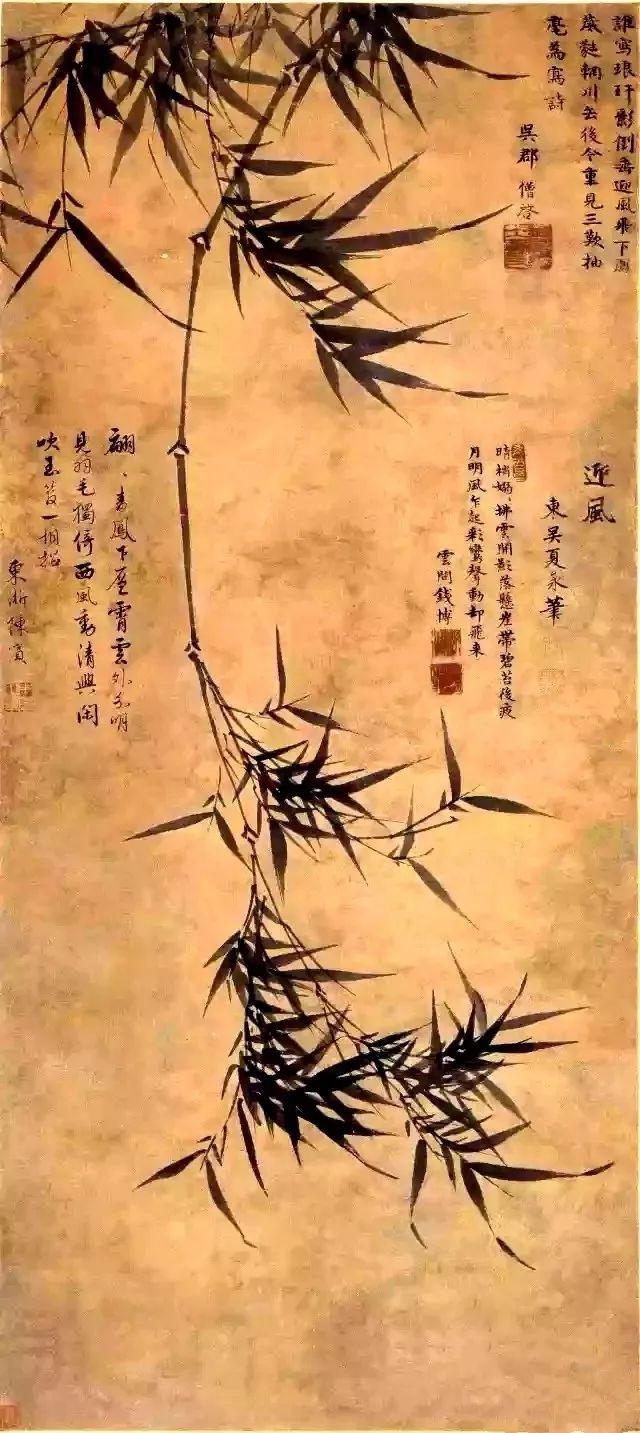 誰寫琅玕影倒垂迎風飛下鳳
葳蕤輞川去後今重見三歎抽
毫為寫詩
吳郡
迎風
東吳夏㫤筆
晴梢嫋嫋拂雲開影落懸崖帶碧苔後夜
月明風乍起彩鸞聲動却飛來
雲間錢博
翩翩青鳳下層霄雲外分明
見羽毛獨倚西風動清興閑
吹玉
東浙陳